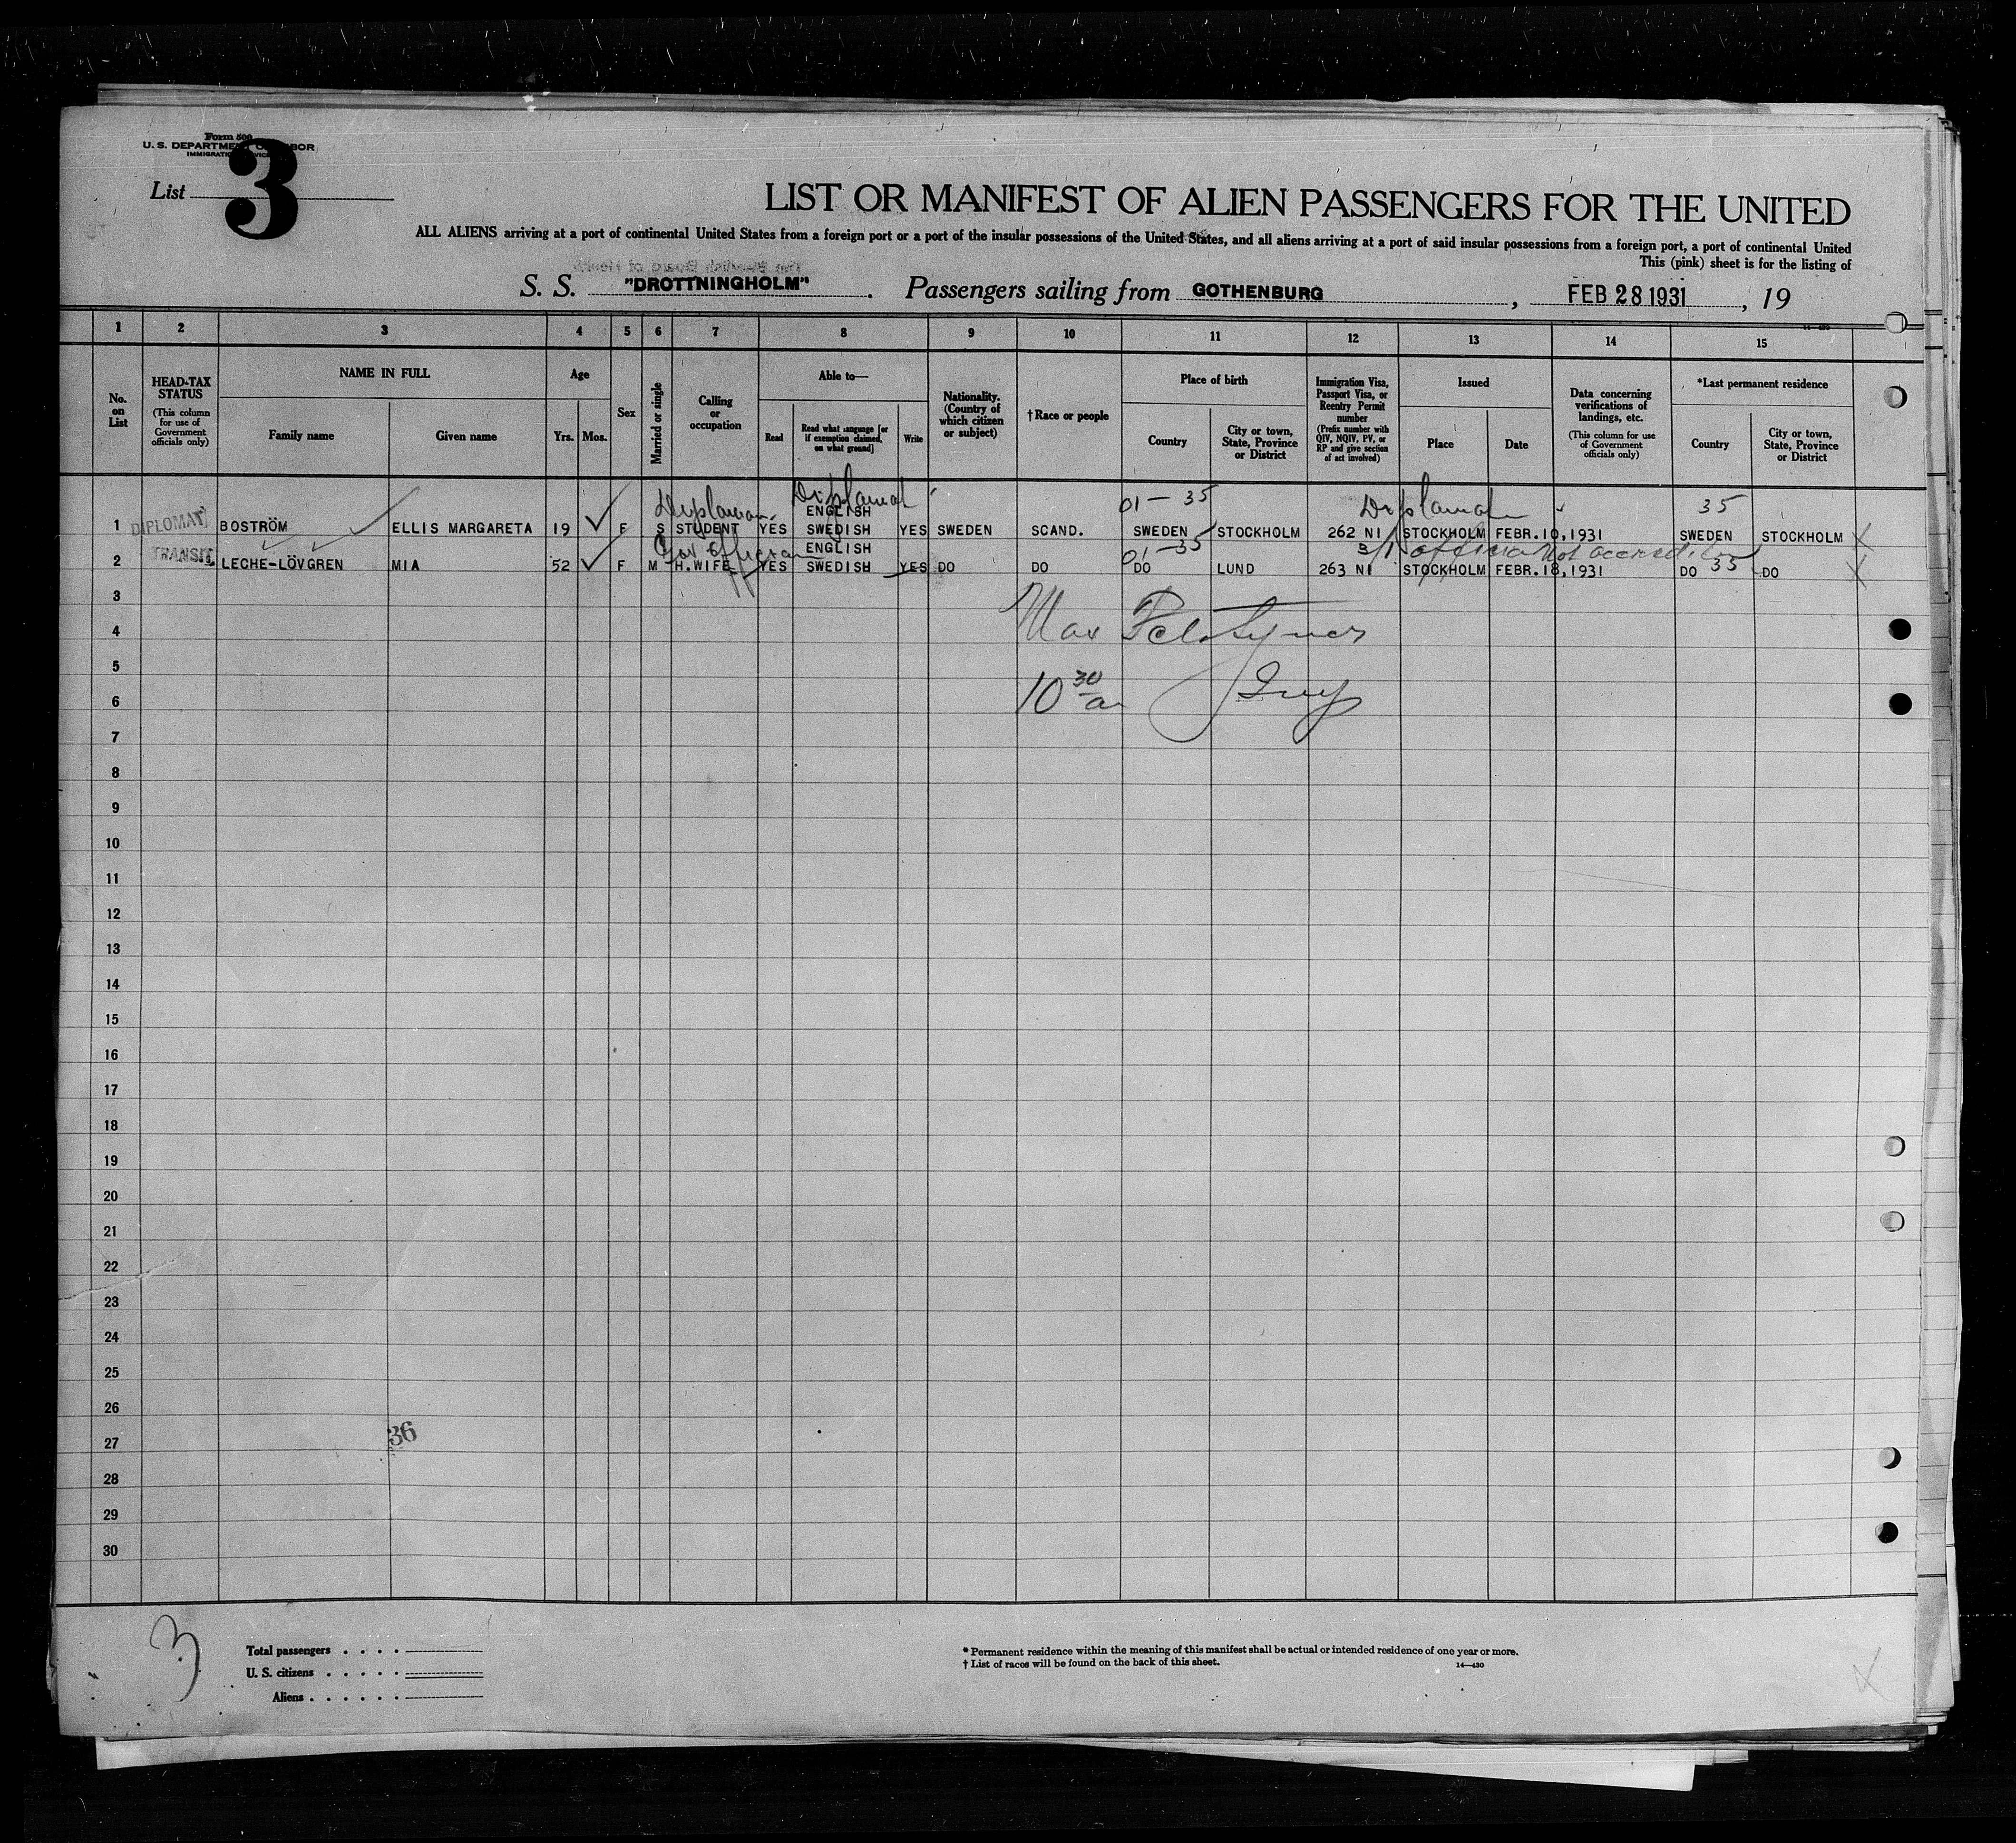 Form 500
U. S. DEPARTMENT OF LABOR
IMMIGRATION SERVICE
List 3
LIST OR MANIFEST OF ALIEN PASSENGERS FOR THE UNITED
ALL ALIENS arriving at a port of continental United States from a foreign port or a port of the insular possessions of the United States, and all aliens arriving at a port of said insular possessions from a foreign port, a port of continental United
This (pink) sheet is for the listing of
The Swedish Board of Health
S. S. "DROTTNINGHOLM". Passengers sailing from GOTHENBURG, FEB 28 1931, 19
14-430
1 2 3 4 5 6 7 8 9 10 11 12 13 14 15
No. on List
HEAD-TAX STATUS
(This column for use of Government officials only)
NAME IN FULL
Family name
Given name
Age
Yrs. Mos.
Sex
Married or single
Calling or occupation
Able to—
Read
Read what language [or if exemption claimed, on what ground]
Write
Nationality. (Country of which citizen or subject)
† Race or people
Place of birth
Country
City or town, State, Province or District
Immigration Visa, Passport Visa, or Reentry Permit number
(Prefix number with QIV, NQIV, PV, or RP and give section of act involved)
Issued
Place
Date
Data concerning verifications of landings, etc.
(This column for use of Government officials only)
*Last permanent residence
Country
City or town, State, Province or District
Diplomat 01-35 Diplomat 35
ENGLISH
1 DIPLOMAT BOSTRÖM ELLIS MARGARETA 19 F S STUDENT YES SWEDISH YES SWEDEN SCAND. SWEDEN STOCKHOLM 262 NI STOCKHOLM FEBR.10,1931 SWEDEN STOCKHOLM
ENGLISH 01-35 3/1 official not accredited
2 TRANSIT LECHE-LÖVGREN MIA 52 F M H.WIFE YES SWEDISH YES DO DO DO LUND 263 NI STOCKHOLM FEBR.18,1931 DO 35 DO
3
Max
4
5
10 30 a
6
7
8
9
10
11
12
13
14
15
16
17
18
19
20
21
22
23
24
25
26
36
27
28
29
30
3
Total passengers . . . .
U. S. citizens . . . . .
Aliens . . . . . .
* Permanent residence within the meaning of this manifest shall be actual or intended residence of one year or more.
† List of races will be found on the back of this sheet.
14—430